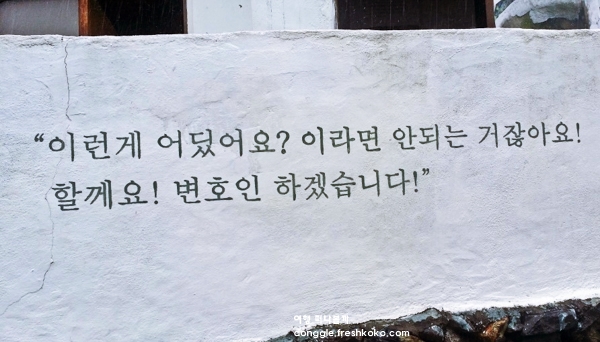 “이런게 어딨어요? 이라면 안되는 거잖아요!
할께요! 변호인 하겠습니다!”
donggle.freshkoko.com